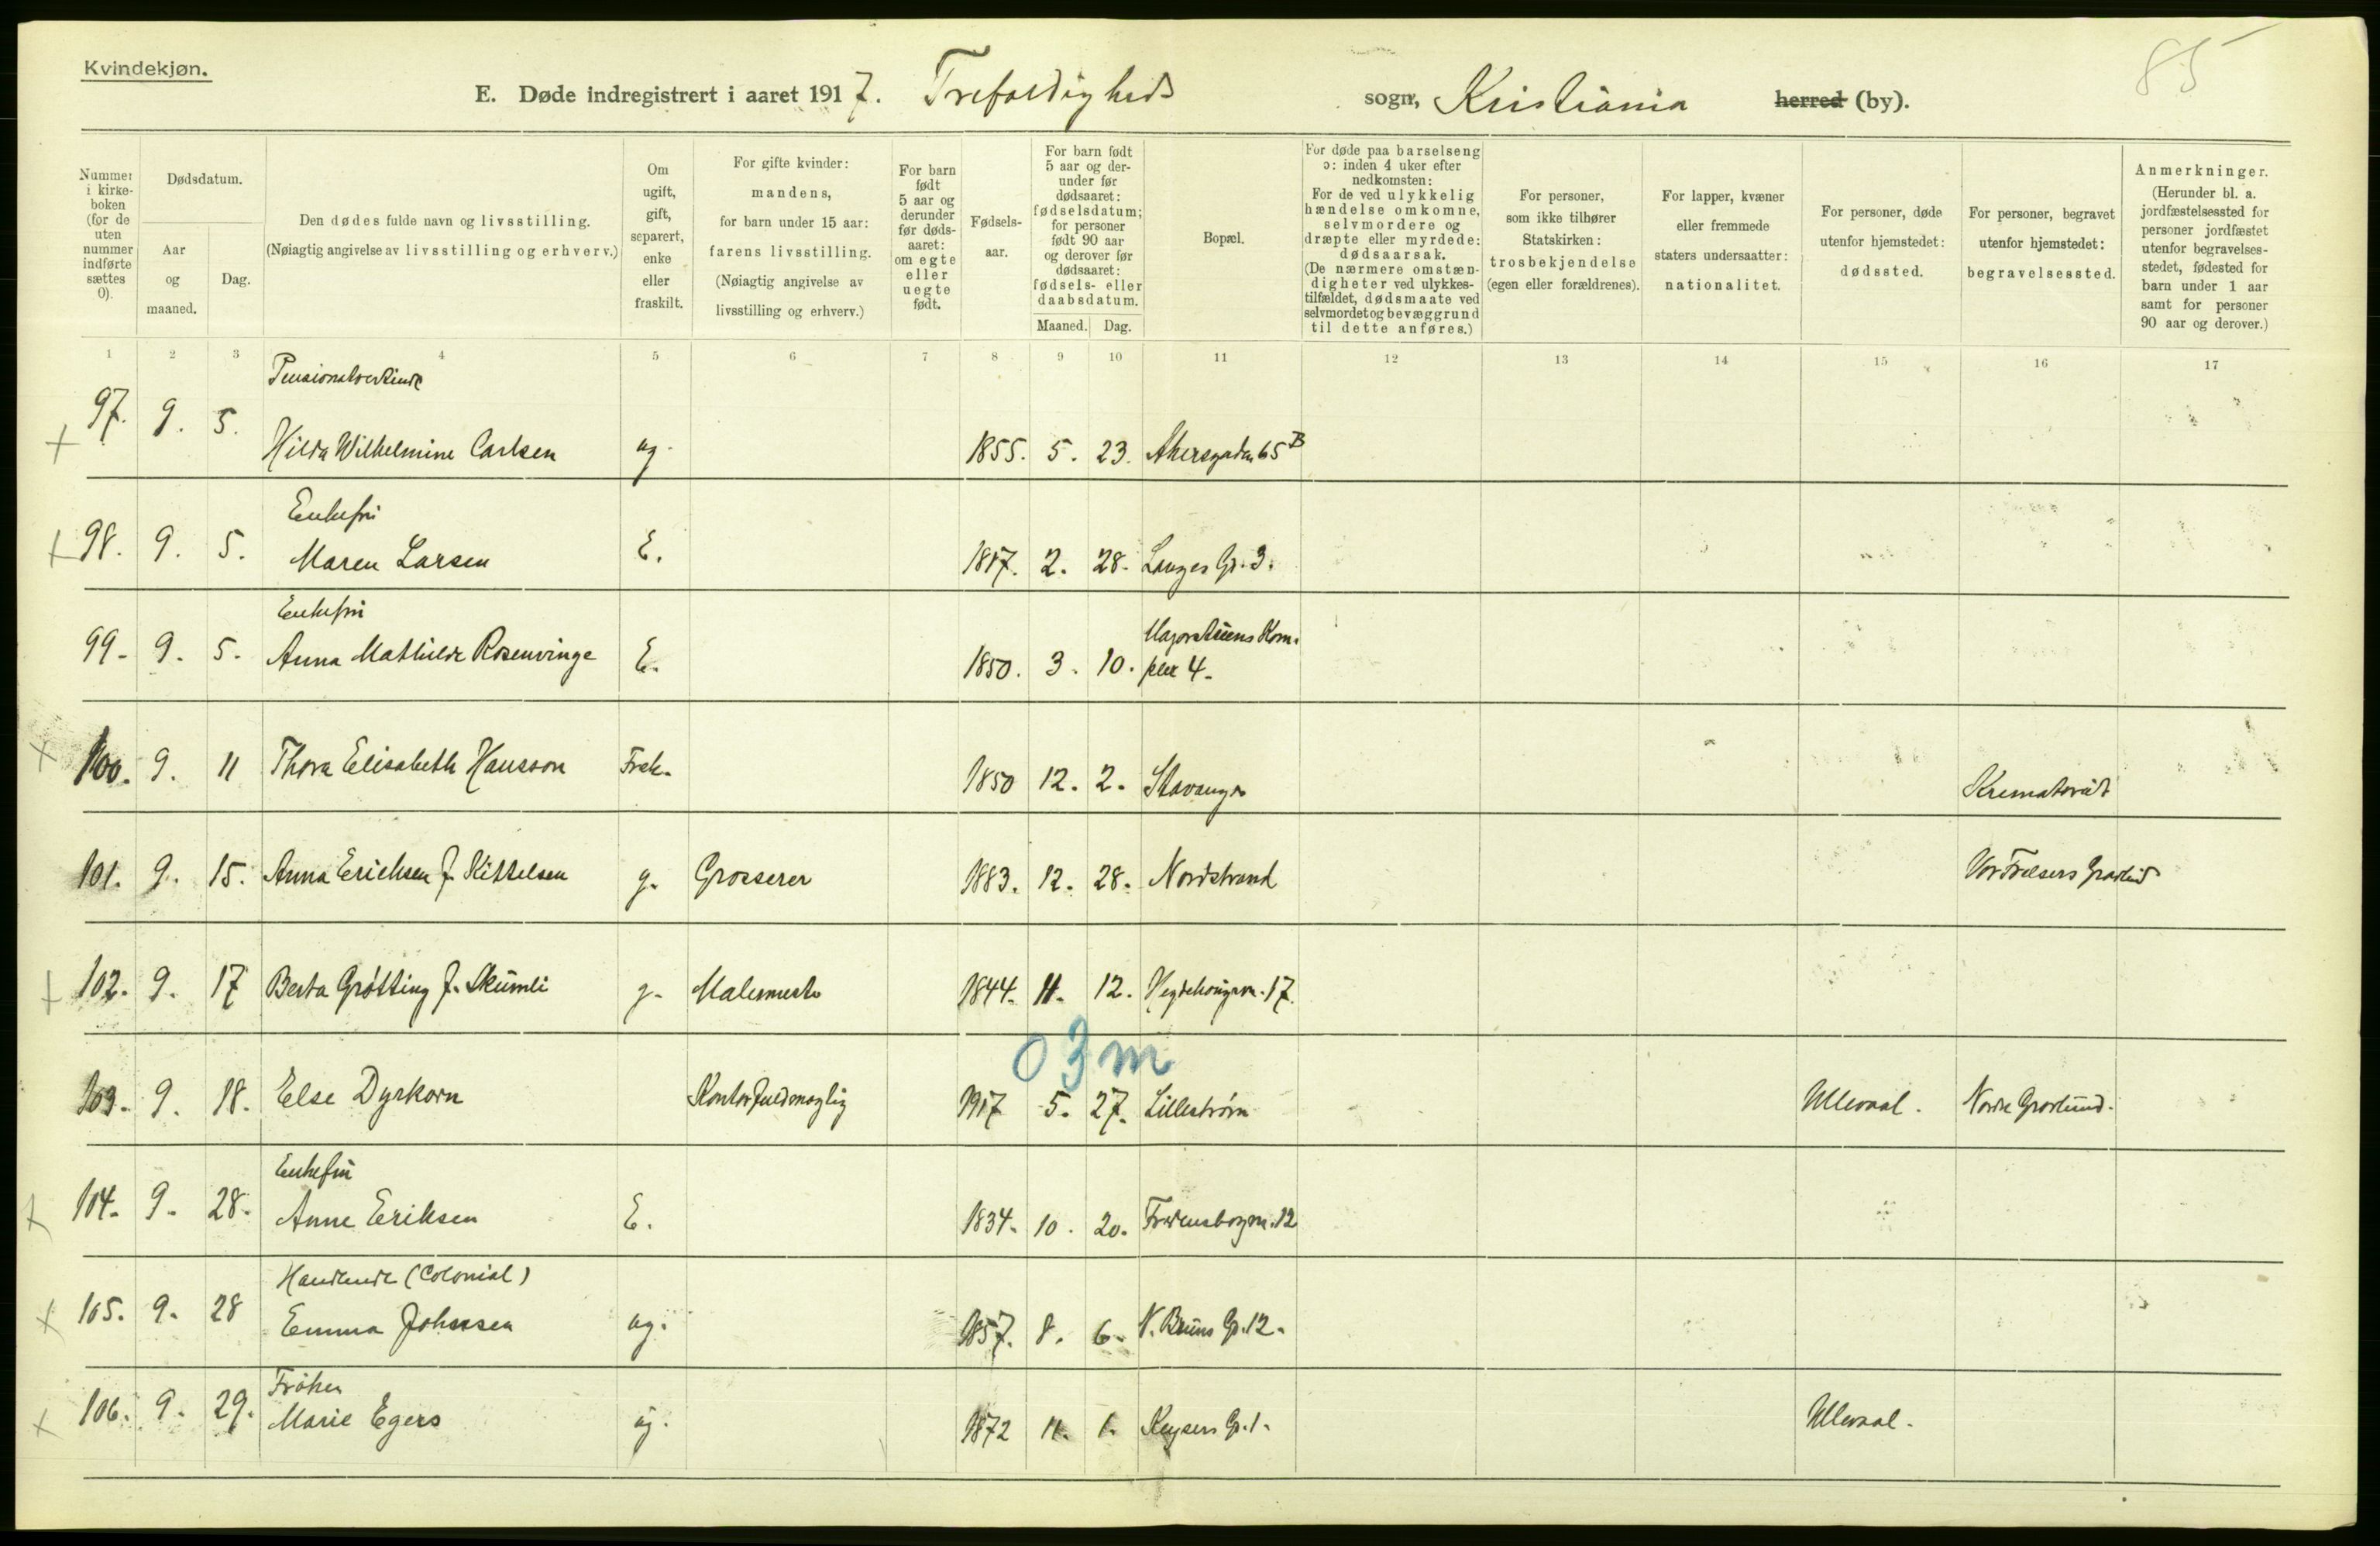 Kvindekjøn.
85
E. Døde indregistrert i aaret 1917. Trefoldigheds sogn, Kristiania herred (by).
Nummer i kirkeboken (for de uten nummer indførte sættes 0).
Dødsdatum.
Aar og maaned.
Dag.
Den dødes fulde navn og livsstilling.
(Nøiagtig angivelse av livsstilling og erhverv.)
Om ugift, gift, separert, enke eller fraskilt.
For gifte kvinder: mandens, for barn under 15 aar: farens livsstilling.
(Nøiagtig angivelse av livsstilling og erhverv.)
For barn født 5 aar og derunder før dødsaaret: om egte eller uegte født.
Fødselsaar.
For barn født 5 aar og derunder før dødsaaret: fødselsdatum; for personer født 90 aar og derover før dødsaaret: fødsels- eller daabsdatum.
Maaned. Dag.
Bopæl.
For døde paa barselseng ɔ: inden 4 uker efter nedkomsten: For de ved ulykkelig hændelse omkomne, selvmordere og dræpte eller myrdede: dødsaarsak.
(De nærmere omstændigheter ved ulykkestilfældet, dødsmaate ved selvmordet og bevæggrund til dette anføres.)
For personer, som ikke tilhører Statskirken: trosbekjendelse (egen eller forældrenes).
For lapper, kvæner eller fremmede staters undersaatter: nationalitet.
For personer, døde utenfor hjemstedet: dødssted.
For personer, begravet utenfor hjemstedet: begravelsessted.
Anmerkninger.
(Herunder bl. a. jordfæstelsessted for personer jordfæstet utenfor begravelsesstedet, fødested for barn under 1 aar samt for personer 90 aar og derover.)
1 2 3 4 5 6 7 8 9 10 11 12 13 14 15 16 17
Pensionatvertinde
97. 9. 5. Hilda Wilhelmine Carlsen ug. 1855. 5. 23. Akersgaden 65 B
Enkefru
98. 9. 5. Maren Larsen E. 1817. 2. 28. Langes Gt. 3.
Enkefru
99. 9. 5. Anna Mathilde Rosenvinge E. 1850. 3. 10. Majorstuens Kom-
plex 4.
100. 9. 11 Thora Elisabeth Hansson Frsk. 1850 12. 2. Stavanger Krematoriet
101. 9. 15. Anna Erichsen f. Kittelsen g. Grosserer 1883. 12. 28. Nordstrand Vor Frelsers Gravlund
102. 9. 17 Berta Grøtting f. Skumli g. Malermester 1844. 11. 12. Hegdehaugsv. 17.
03m
103. 9. 18. Else Dyrkorn Kontorfuldmægtig 1917 5. 27. Lillestrøm Ullevaal. Nordre Gravlund.
Enkefru
104. 9. 28. Anne Eriksen E. 1834. 10. 20. Fredensborgvn. 12
Handlende (Colonial)
105. 9. 28 Emma Johnsen ug. 1857. 8. 6. N. Bruns Gt. 12.
Frøken
106. 9. 29. Marie Egers ug. 1872 11. 1. Keysers Gt. 1. Ullevaal.